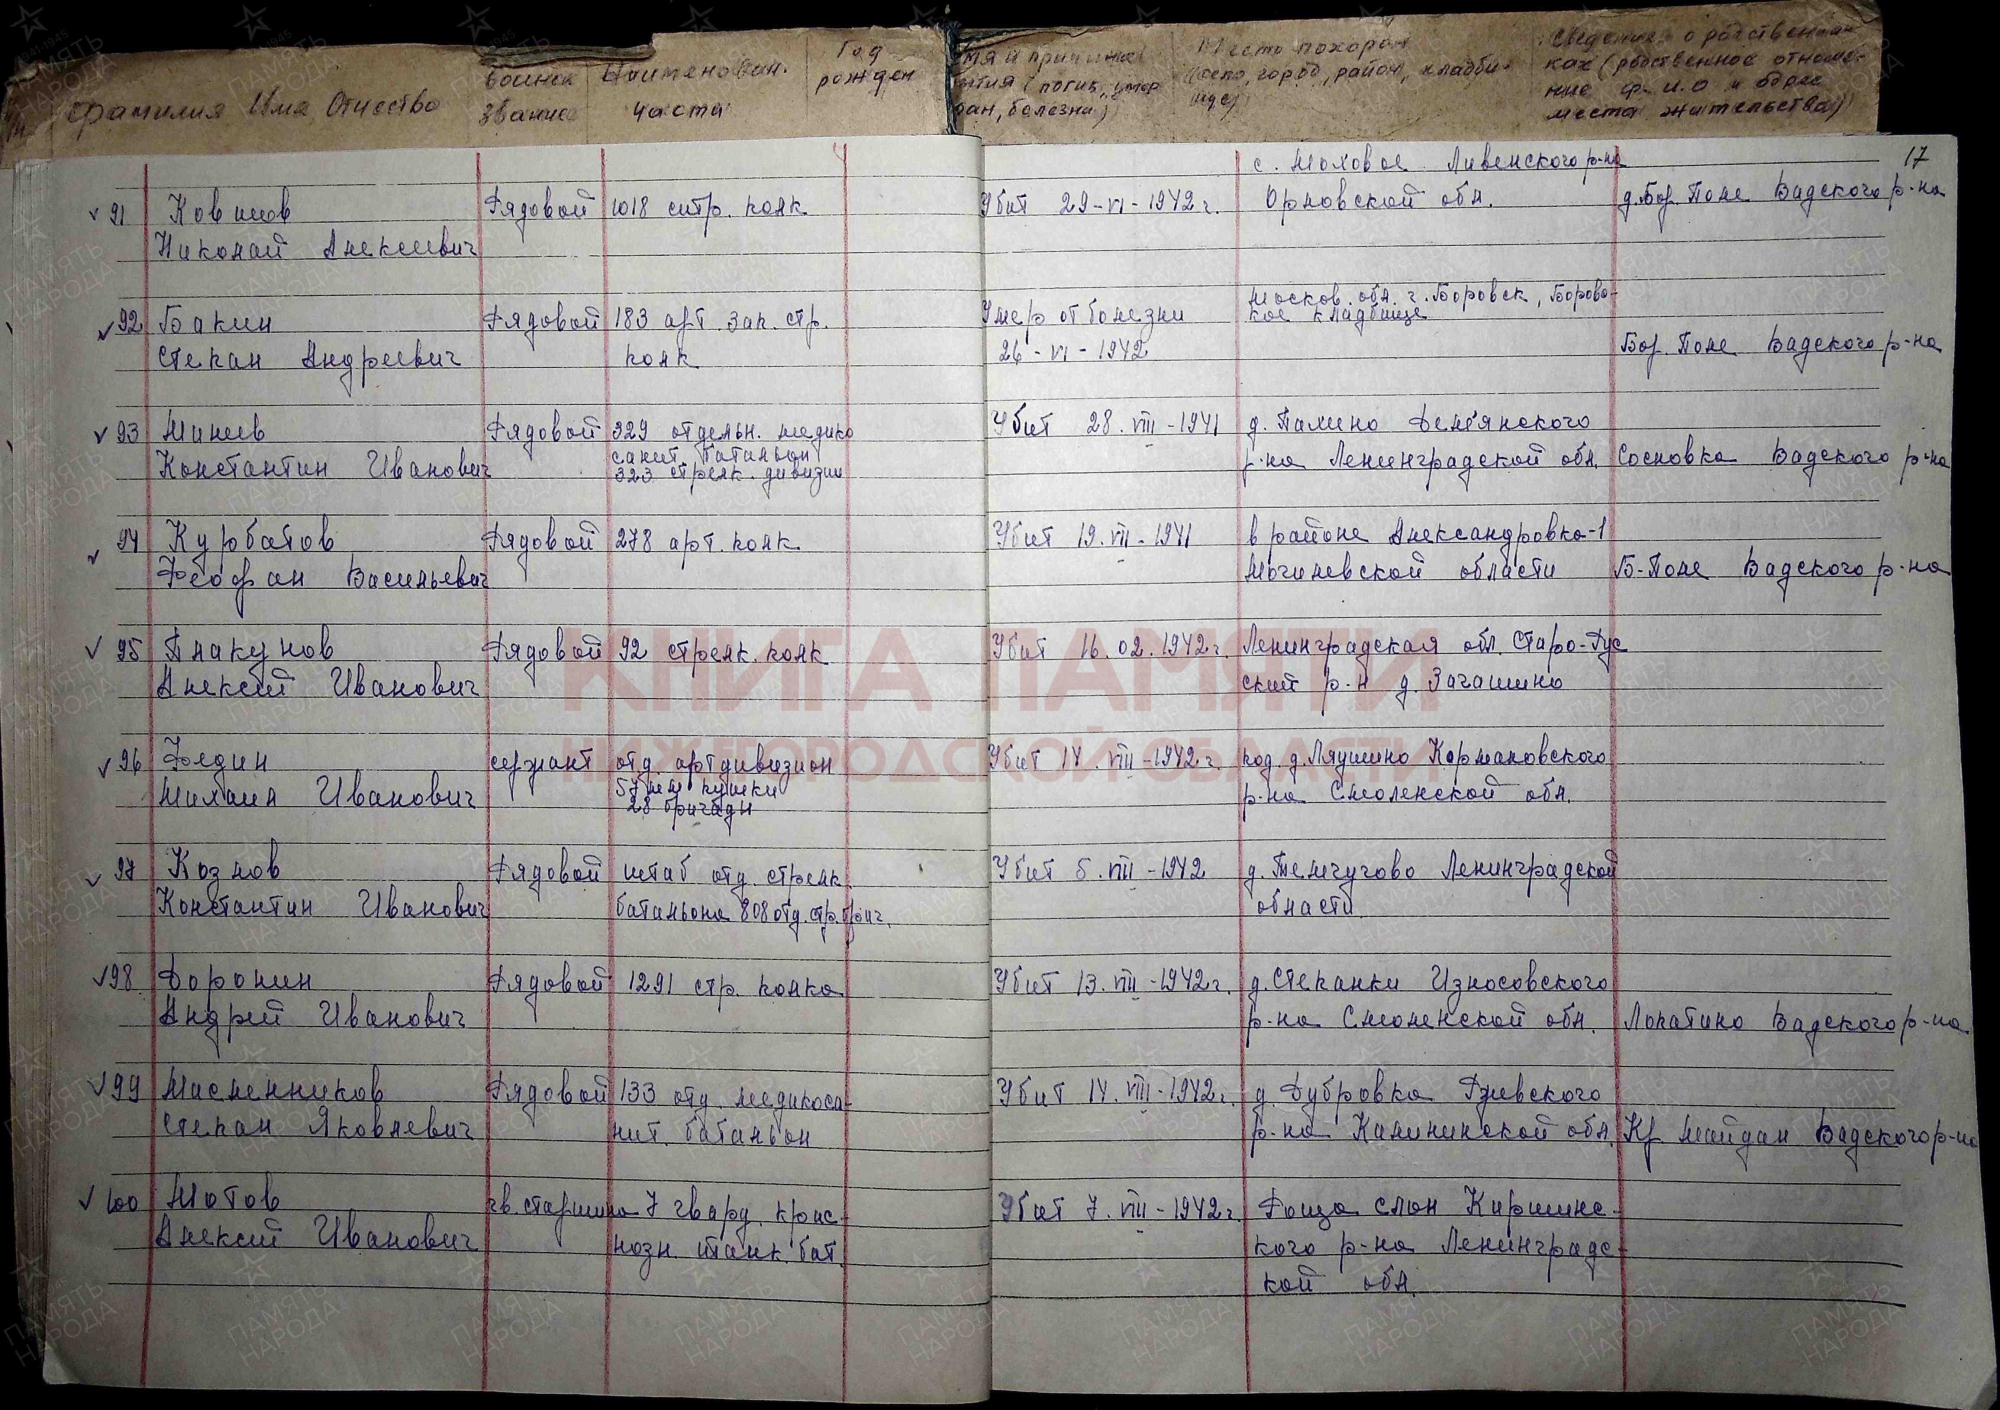 Фамилия Имя Отчество
воинск звание
Наименован. части
Год рожден
(погиб, умер
ран, болезни)
Место похорон
город, район, кладби-
ще)
Сведения о родственни-
ках (родственное отноше-
ние ф.и.о и адрес
места жительства)
17
с. Моховое Ливенского р-на
91 Ковшов Рядовой 1018 стр. полк Убит 29-VI-1942г. Орловской обл. д. Бол. Поле Вадского р-на
Николай Алексеевич
Москов. обл. г. Боровск, Боров-
ское кладбище
92 Бакин Рядовой 183 арт. зап. стр. Умер от болезни
Степан Андреевич полк 26-VI-1942 Бол. Поле Вадского р-на
93 Минеев Рядовой 329 отдельн. медико Убит 28.VIII-1941 д. Палино Демянского
санит. батальон
Константин Иванович 323 стрелк. дивизии р-на Ленинградской обл. Сосновка Вадского р-на
94 Курбатов Рядовой 278 арт. полк Убит 19.VII-1941 в районе Александровка-1
Феофан Васильевич Могилевской области Б-Поле Вадского р-на
95 Плакунов Рядовой 92 стрелк. полк Убит 16.02.1942г. Ленинградская обл. Старо-Рус
Алексей Иванович ский р-н д. Загашино
96 Федин сержант отд. артдивизион Убит 14.VIII-1942г. под д. Ляушино Кармановского
57 мм пушки
Михаил Иванович 28 бригады р-на Смоленской обл.
97 Козлов Рядовой штаб отд. стрелк. Убит 5.VIII-1942 д. Темчугово Ленинградской
Константин Иванович батальона 808 отд. стр. бриг. области
98 Доронин Рядовой 1291 стр. полка Убит 13.VIII-1942г. д. Степанки Износовского
Андрей Иванович р-на Смоленской обл. Лопатино Вадского р-на
99 Масленников Рядовой 133 отд. медикоса- Убит 14.VIII-1942г. д. Дубровка Ржевского
Степан Яковлевич нит. батальон р-на Калининской обл. Кр Майдан Вадского р-на
100 Мотов гв. старшина 7 гвард. крас- Убит 7.VIII-1942г. Роща слон Киришс-
Алексей Иванович нозн. танк. бат. кого р-на Ленинградс-
кой обл.
КНИГА ПАМЯТИ
НИЖЕГОРОДСКОЙ ОБЛАСТИ
ПАМЯТЬ НАРОДА